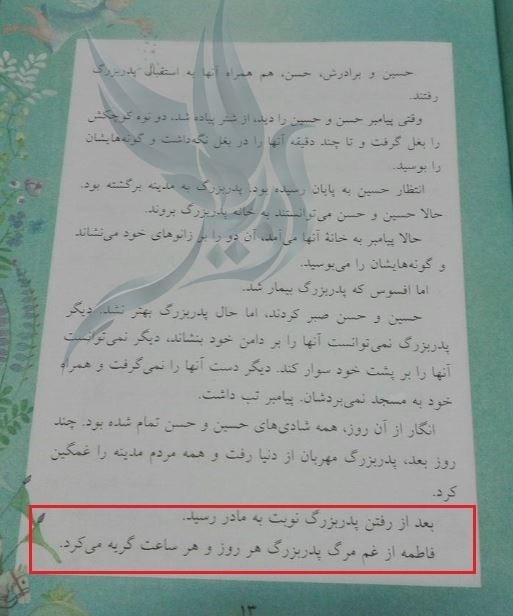 حسین و برادرش، حسن، هم همراه آنها به استقبال پدربزرگ
رفتند.
وقتی پیامبر حسن و حسین را دید، از شتر پیاده شد، دو نوه کوچکش
را بغل گرفت و تا چند دقیقه آنها را در بغل نگه‌داشت و گونه‌هایشان
را بوسید.
انتظار حسین به پایان رسیده بود. پدربزرگ به مدینه برگشته بود.
حالا حسین و حسن می‌توانستند به خانه پدربزرگ بروند.
حالا پیامبر به خانهٔ آنها می‌آمد، آن دو را بر زانوهای خود می‌نشاند
و گونه‌هایشان را می‌بوسید.
اما افسوس که پدربزرگ بیمار شد.
حسین و حسن صبر کردند، اما حال پدربزرگ بهتر نشد. دیگر
پدربزرگ نمی‌توانست آنها را بر دامن خود بنشاند، دیگر نمی‌توانست
آنها را بر پشت خود سوار کند. دیگر دست آنها را نمی‌گرفت و همراه
خود به مسجد نمی‌بردشان. پیامبر تب داشت.
انگار از آن روز، همه شادی‌های حسین و حسن تمام شده بود. چند
روز بعد، پدربزرگ مهربان از دنیا رفت و همه مردم مدینه را غمگین
کرد.
بعد از رفتن پدربزرگ نوبت به مادر رسید.
فاطمه از غم مرگ پدربزرگ هر روز و هر ساعت گریه می‌کرد.
۱۳